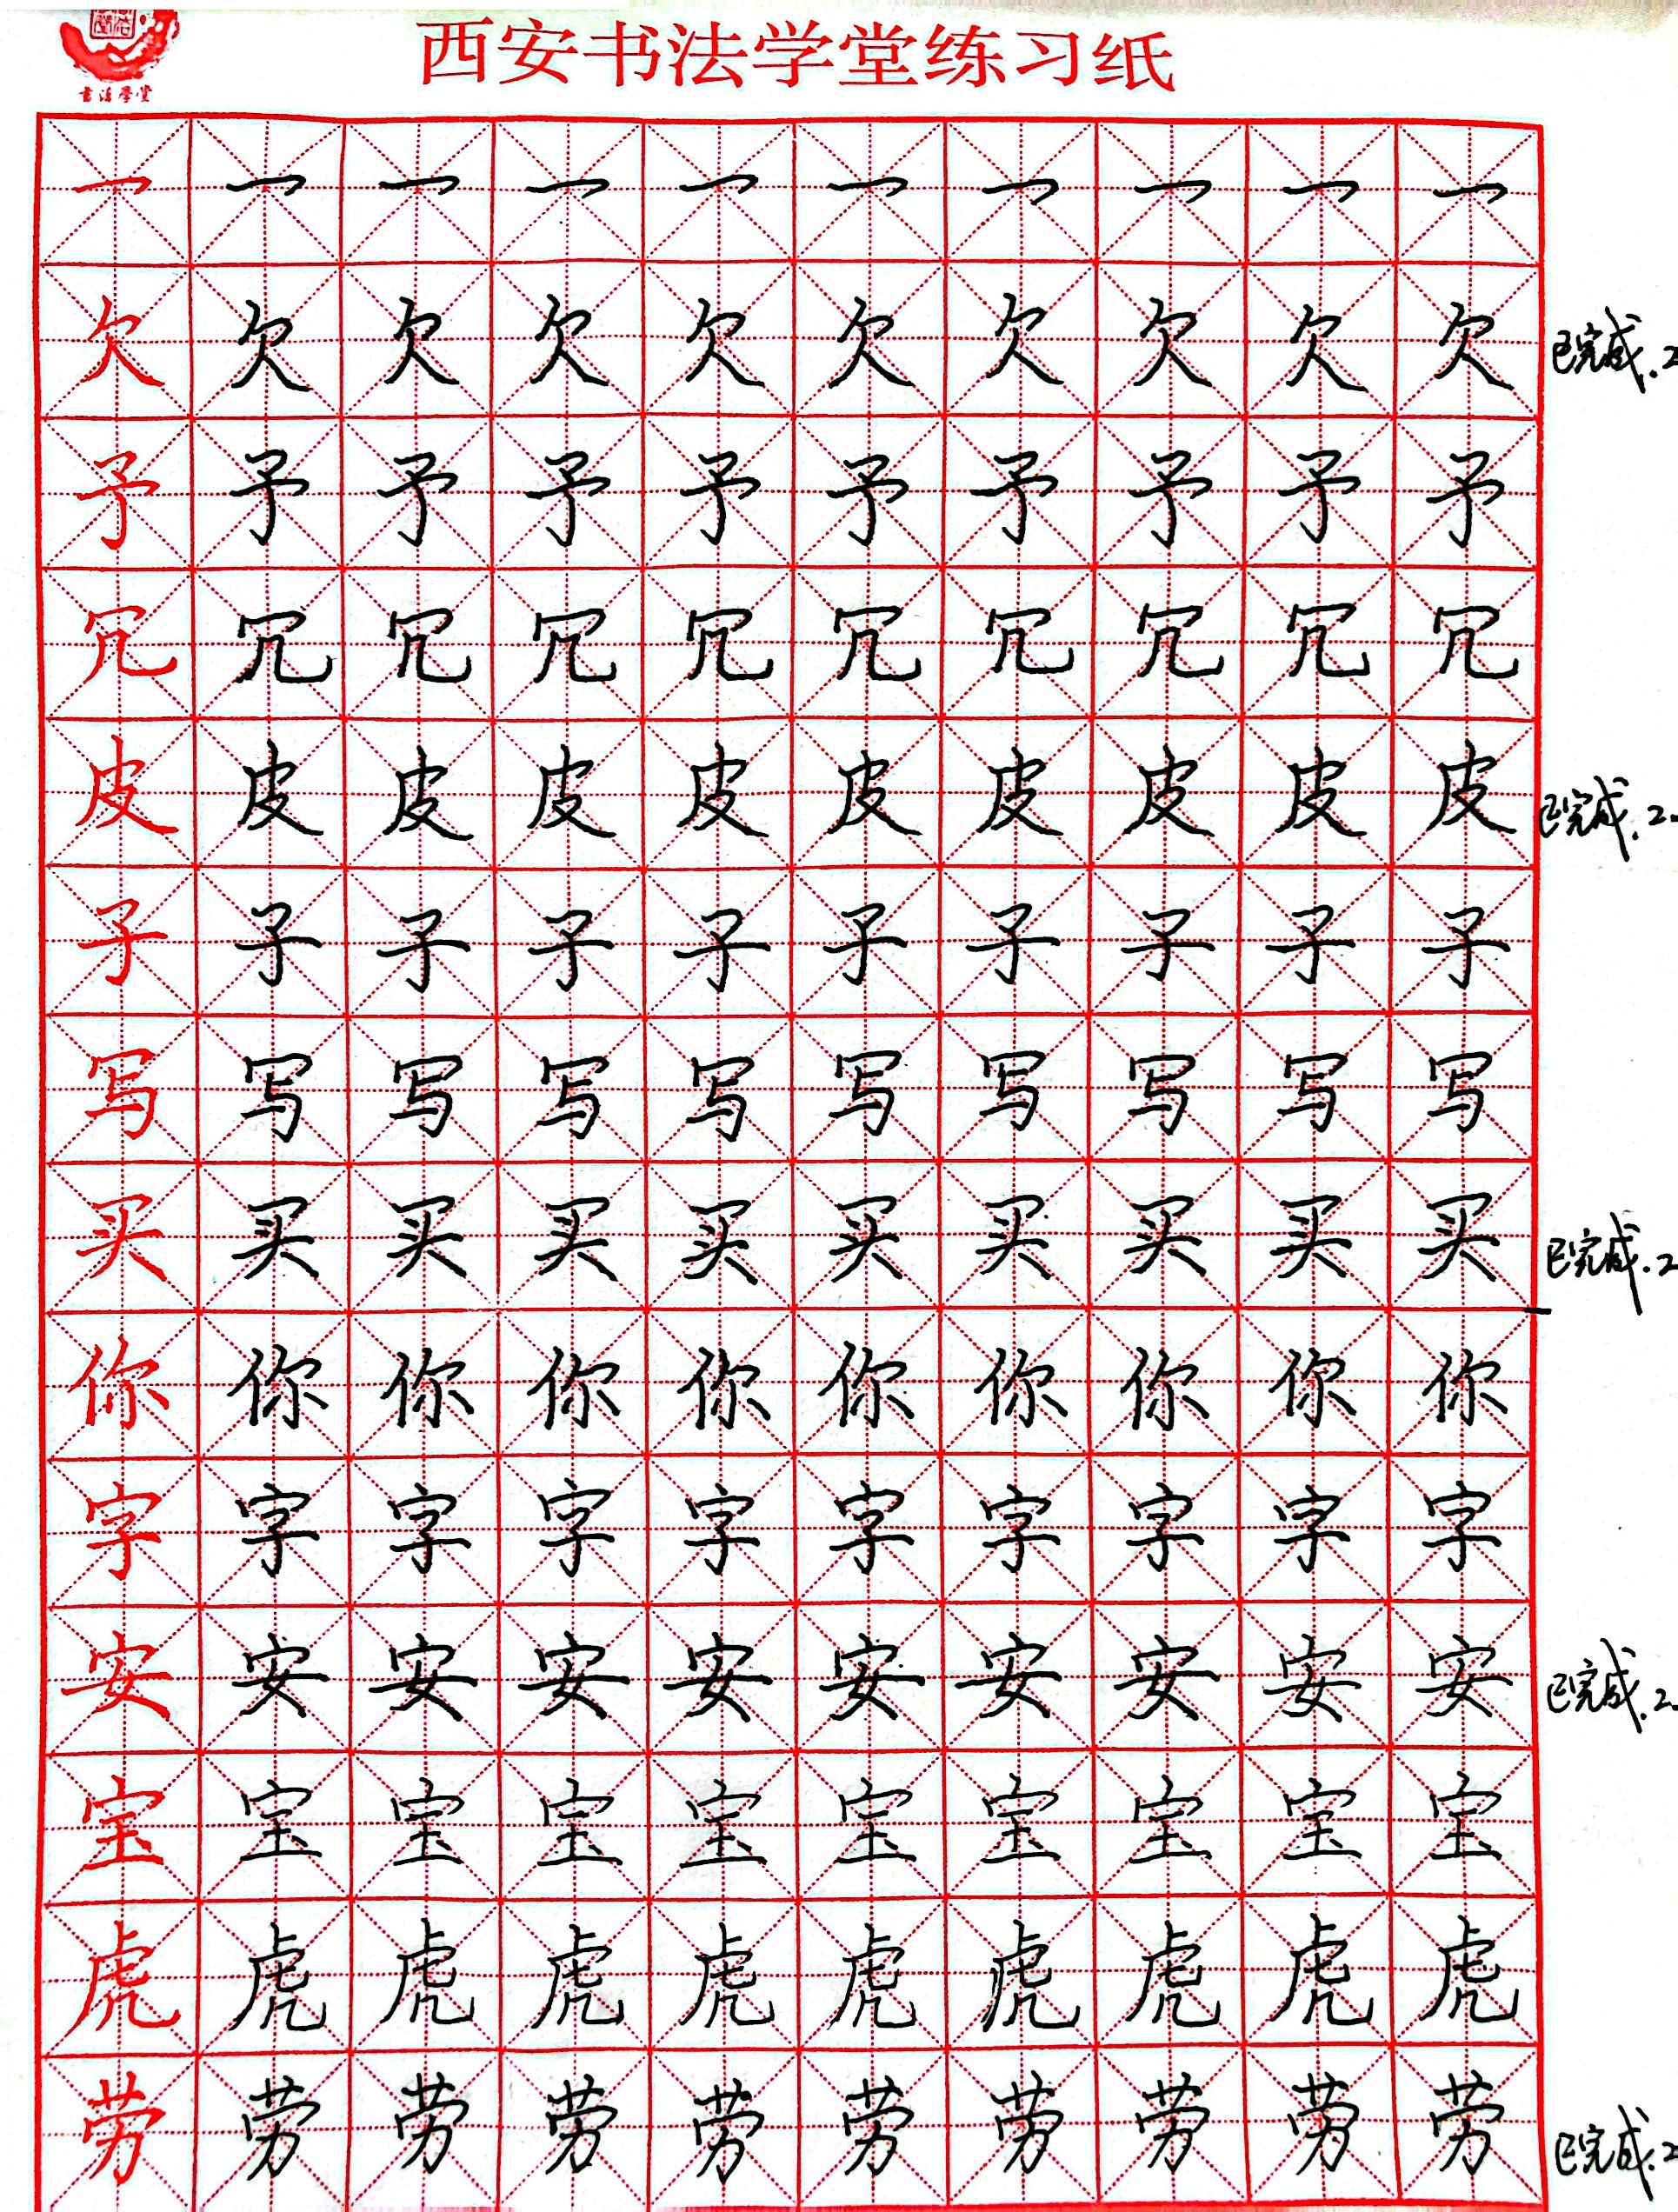 书法学堂
西安书法学堂练习纸
一 一 一 一 一 一 一 一 一 一
欠 欠 欠 欠 欠 欠 欠 欠 欠 欠 已完成.2
予 予 予 予 予 予 予 予 予 予
冗 冗 冗 冗 冗 冗 冗 冗 冗 冗
皮 皮 皮 皮 皮 皮 皮 皮 皮 皮 已完成.2.
子 子 子 子 子 子 子 子 子 子
写 写 写 写 写 写 写 写 写 写
买 买 买 买 买 买 买 买 买 买 已完成.2
你 你 你 你 你 你 你 你 你 你
字 字 字 字 字 字 字 字 字 字
安 安 安 安 安 安 安 安 安 安 已完成.2.
宝 宝 宝 宝 宝 宝 宝 宝 宝 宝
虎 虎 虎 虎 虎 虎 虎 虎 虎 虎
劳 劳 劳 劳 劳 劳 劳 劳 劳 劳 已完成.2